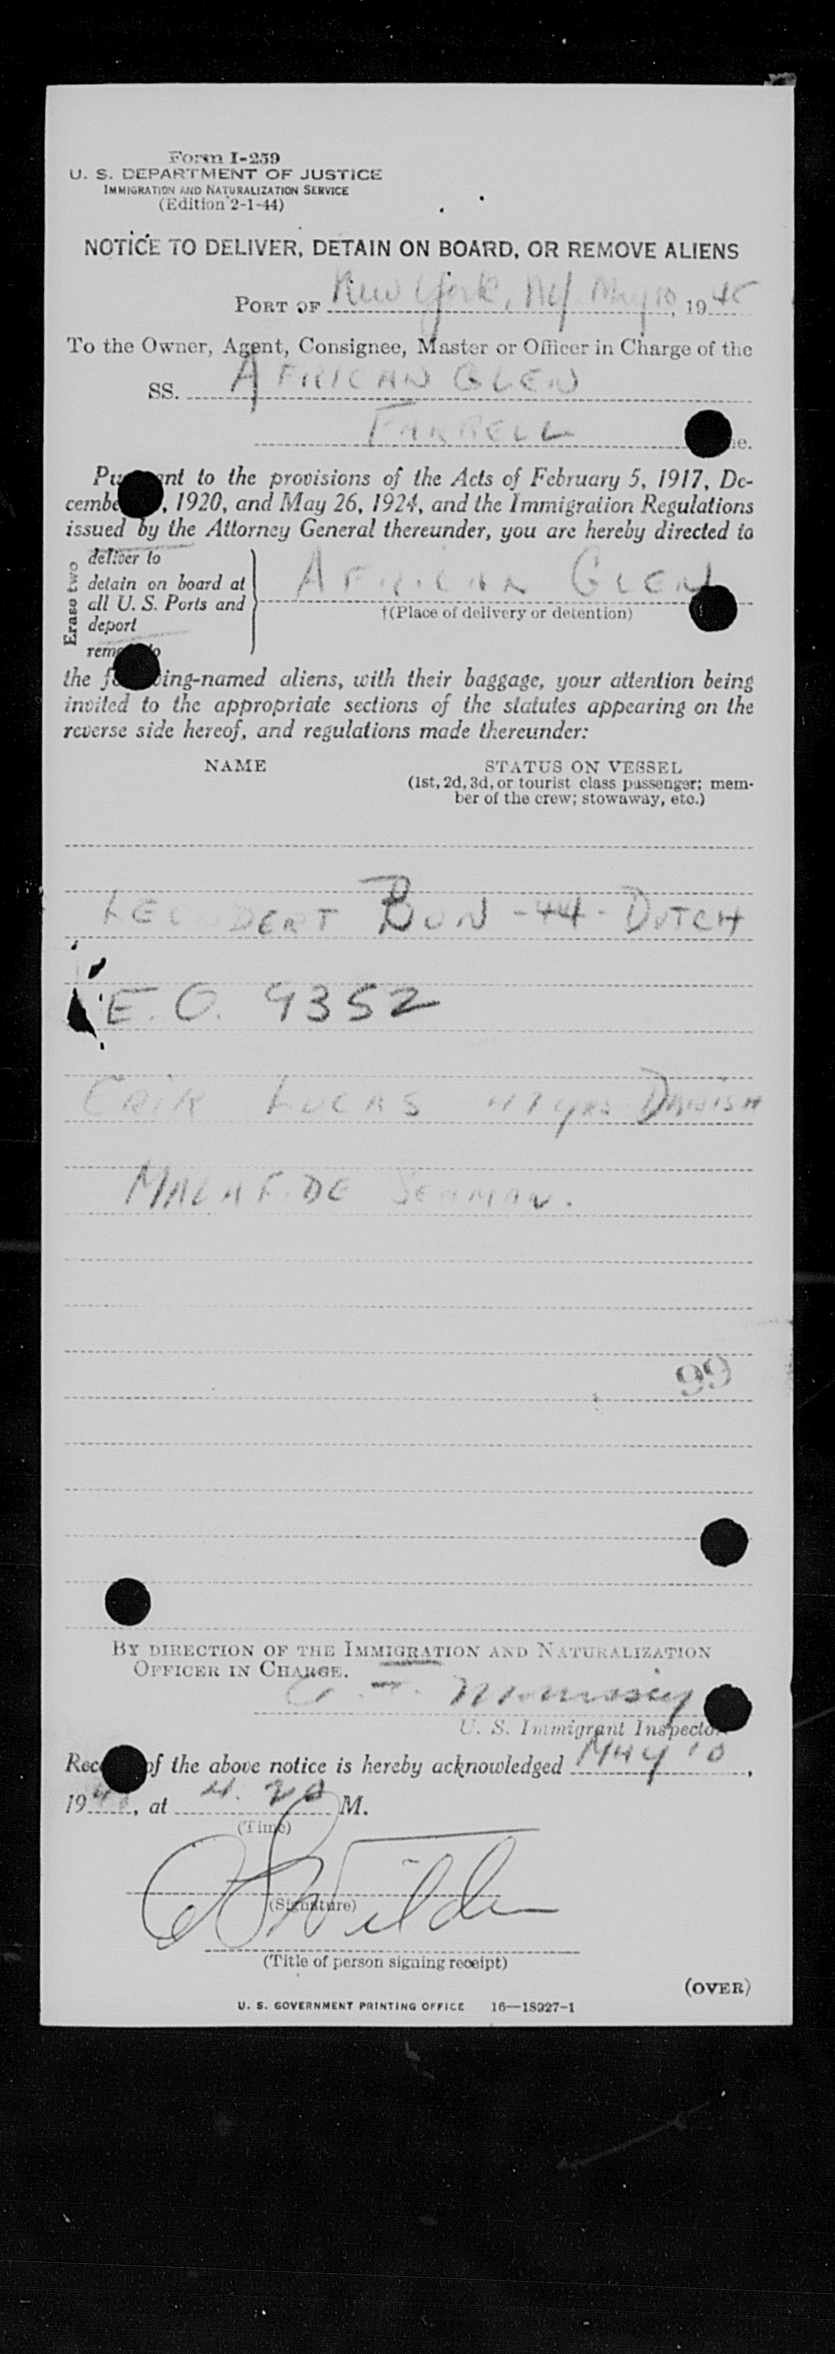 Form I-259
U. S. DEPARTMENT OF JUSTICE
IMMIGRATION AND NATURALIZATION SERVICE
(Edition 2-1-44)
NOTICE TO DELIVER, DETAIN ON BOARD, OR REMOVE ALIENS
PORT OF New York, NY May 10, 1945
To the Owner, Agent, Consignee, Master or Officer in Charge of the
SS. AFRICAN GLEN
FARRELL ne.
Pu nt to the provisions of the Acts of February 5, 1917, De-
cembe , 1920, and May 26, 1924, and the Immigration Regulations
issued by the Attorney General thereunder, you are hereby directed to
Erase two
deliver to
detain on board at
all U. S. Ports and
deport
rem o
AFRICAN GLEN
†(Place of delivery or detention)
the f ing-named aliens, with their baggage, your attention being
invited to the appropriate sections of the statutes appearing on the
reverse side hereof, and regulations made thereunder:
NAME
STATUS ON VESSEL
(1st, 2d, 3d, or tourist class passenger; mem-
ber of the crew; stowaway, etc.)
LEENDERT BUN - 44 - DUTCH
E. O. 9352
LUCAS yrs DANISH
MALAFIDE SEAMAN.
99
BY DIRECTION OF THE IMMIGRATION AND NATURALIZATION
OFFICER IN CHARGE.
Morrissey
U. S. Immigrant Inspector
Rec of the above notice is hereby acknowledged May 10,
194 , at 4.20 M.
(Time)
Wilder
(Signature)
(Title of person signing receipt)
(OVER)
U. S. GOVERNMENT PRINTING OFFICE 16—18927-1